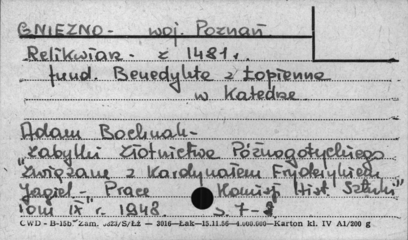 GNIEZNO - woj. Poznań
Relikwiarz - z 1481 r.
fund. Benedykta z Łopienna
w Katedze
Adam Bochnak -
"Zabytki Złotnictwa Późnogotyckiego
Związane z Kardynałem Fryderykiem
Jagiel. - Prace Komisji Hist. Sztuki"
Tom IX" r. 1948. s. 7-8
CWD - B-15b Zam. S/Łż — 3016—Łąk—15.11.56—4.000.000—Karton kl. IV A1/200 g